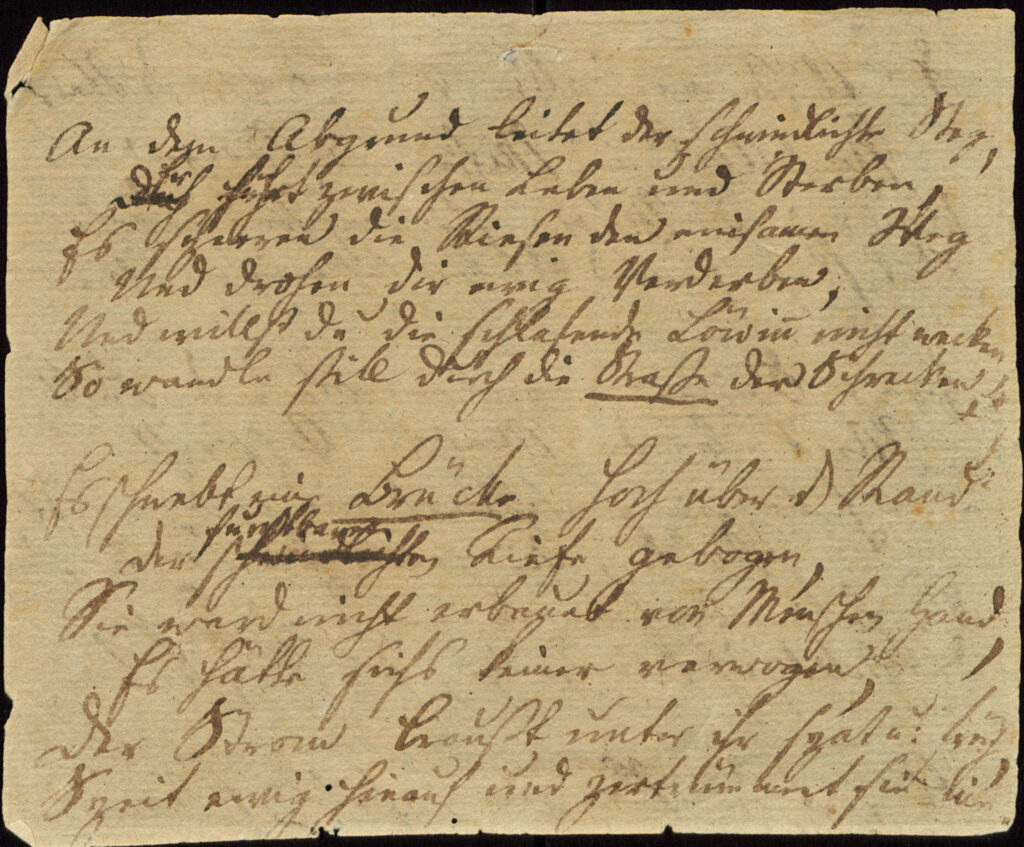 An dem Abgrund leitet der schwindlichte Steg,
Er führt zwischen Leben und Sterben,
Es sperren die Riesen den einsamen Weg
Und drohen dir ewig Verderben,
Und willst du die schlafende Löwin nicht wecken
So wandle still durch die Straße der Schrecken.
Es schwebt eine Brücke hoch über d Rand
der furchtbaren Tiefe gebogen,
Sie ward nicht erbauet von Menschen Hand,
Es hätte sichs keiner verwogen,
Der Strom braußt unter ihr spät u: früh,
Speit ewig hinauf und zertrümmert sie nie